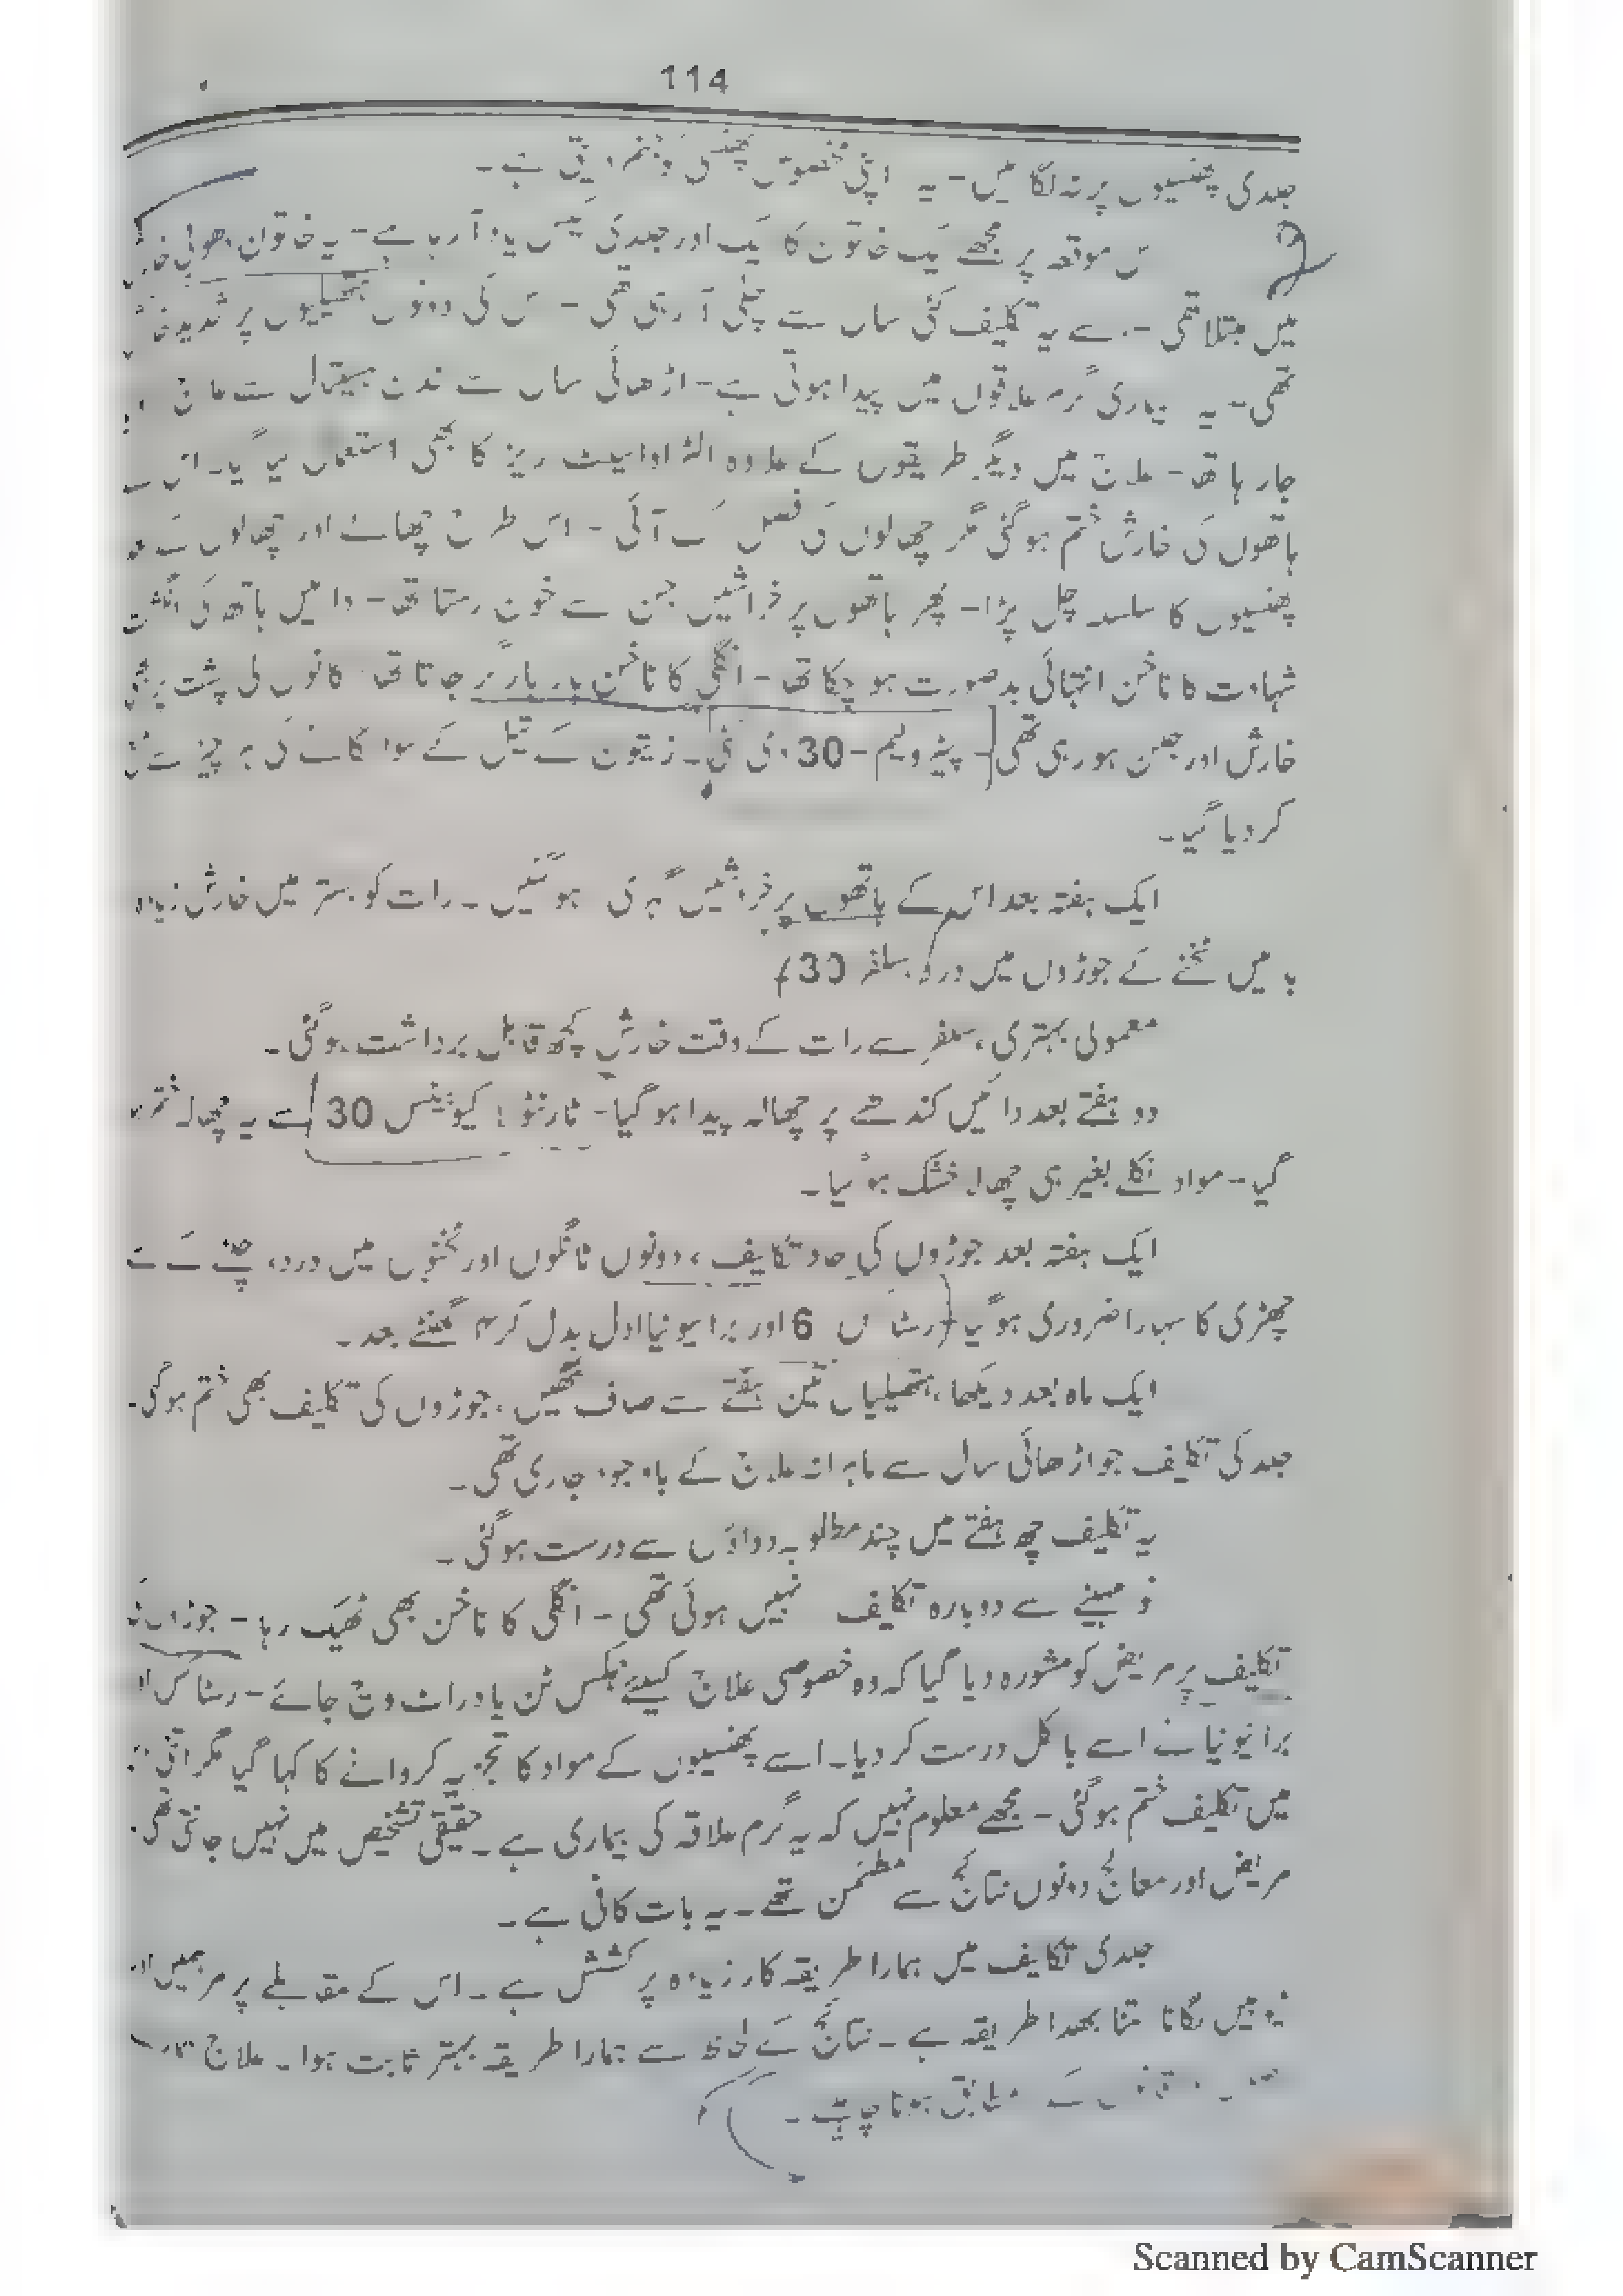 114
جلدی پھنسیوں پر نہ لگائیں - یہ اپنی مخصوص دیتی ہے۔
اس موقعہ پر مجھے ایک خاتون کا ایک اور جلدی کیس یاد آ رہا ہے - یہ خاتون
میں مبتلا تھی - اسے یہ تکلیف کئی سال سے چلی آ رہی تھی - اس کی دونوں ہتھیلیوں پر شدید
تھی - یہ بیماری گرم علاقوں میں پیدا ہوتی ہے - اڑھائی سال سے لندن ہسپتال سے علاج
جا رہا تھا - علاج میں دیگر طریقوں کے علاوہ الٹرا وائیلٹ ریز کا بھی استعمال کیا گیا - اس سے
ہاتھوں کی خارش ختم ہو گئی مگر چھالوں کی فصل آئی - اس طرح چھالے اور چھالوں سے
پھنسیوں کا سلسلہ چل پڑا - پھر ہاتھوں پر خراشیں جن سے خون رستا تھا - دائیں ہاتھ کی انگشت
شہادت کا ناخن انتہائی بدصورت ہو چکا تھا - انگلی کا ناخن بار بار گر جاتا تھا - کانوں کی پشت پر بھی
خارش اور جلن ہو رہی تھی - پیٹرولیم - 30 دی گئی - زیتون کے تیل کے سوا لگانے کی ہر چیز سے منع
کر دیا گیا۔
ایک ہفتہ بعد اس کے ہاتھوں پر خراشیں گہری ہو گئیں - رات کو بستر میں خارش زیادہ
بائیں ٹخنے کے جوڑوں میں درد، سلفر 30
معمولی بہتری، سلفر سے رات کے وقت خارش کچھ قابل برداشت ہو گئی۔
دو ہفتے بعد دائیں کندھے پر چھالہ پیدا ہو گیا - ٹارنٹولا کیوبنسس 30 سے یہ چھالہ ختم ہو
گیا - مواد نکلے بغیر ہی چھالہ خشک ہو گیا۔
ایک ہفتہ بعد جوڑوں کی حاد تکالیف، دونوں ٹانگوں اور ٹخنوں میں درد، چلنے کے لئے
چھڑی کا سہارا ضروری ہو گیا رسٹاکس 6 اور برائیونیا ادل بدل کر ۴ گھنٹے بعد۔
ایک ماہ بعد دیکھا، ہتھیلیاں تین ہفتے سے صاف تھیں، جوڑوں کی تکلیف بھی ختم ہو گئی۔
جلد کی تکالیف جو اڑھائی سال سے ماہرانہ علاج کے باوجود جاری تھی۔
یہ تکلیف چھ ہفتے میں چند مطلوبہ دواؤں سے درست ہو گئی۔
نو مہینے سے دوبارہ تکلیف نہیں ہوئی تھی - انگلی کا ناخن بھی ٹھیک رہا - جوڑوں کی
تکلیف پر مریض کو مشورہ دیا گیا کہ وہ خصوصی علاج کیلئے بکس ٹن یا ڈرائٹ وچ جائے - رسٹاکس اور
برائیونیا نے اسے بالکل درست کر دیا۔ اسے پھنسیوں کے مواد کا تجزیہ کروانے کا کہا گیا مگر اتنی
میں تکلیف ختم ہو گئی - مجھے معلوم نہیں کہ یہ گرم علاقہ کی بیماری ہے۔ حقیقی تشخیص میں نہیں جانتی تھی۔
مریض اور معالج دونوں نتائج سے مطمئن تھے - یہ بات کافی ہے۔
جلدی تکالیف میں ہمارا طریقہ کار زیادہ پرکشش ہے - اس کے مقابلے پر مرہمیں اور
لگانا کتنا بھدا طریقہ ہے - نتائج کے لحاظ سے ہمارا طریقہ بہتر ثابت ہوا - علاج
کے مطابق ہونا چاہئے۔
Scanned by CamScanner